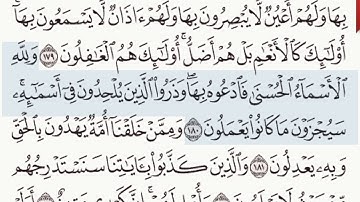 بِهَا وَلَهُمْ أَعْيُنٌ لَّا يُبْصِرُونَ بِهَا وَلَهُمْ ءَاذَانٌ لَّا يَسْمَعُونَ بِهَآ
أُو۟لَـٰٓئِكَ كَٱلْأَنْعَـٰمِ بَلْ هُمْ أَضَلُّ ۚ أُو۟لَـٰٓئِكَ هُمُ ٱلْغَـٰفِلُونَ ١٧٩ وَلِلَّهِ
ٱلْأَسْمَآءُ ٱلْحُسْنَىٰ فَٱدْعُوهُ بِهَا ۖ وَذَرُوا۟ ٱلَّذِينَ يُلْحِدُونَ فِىٓ أَسْمَـٰٓئِهِۦ ۚ
سَيُجْزَوْنَ مَا كَانُوا۟ يَعْمَلُونَ ١٨٠ وَمِمَّنْ خَلَقْنَآ أُمَّةٌ يَهْدُونَ بِٱلْحَقِّ
وَبِهِۦ يَعْدِلُونَ ١٨١ وَٱلَّذِينَ كَذَّبُوا۟ بِـَٔايَـٰتِنَا سَنَسْتَدْرِجُهُم